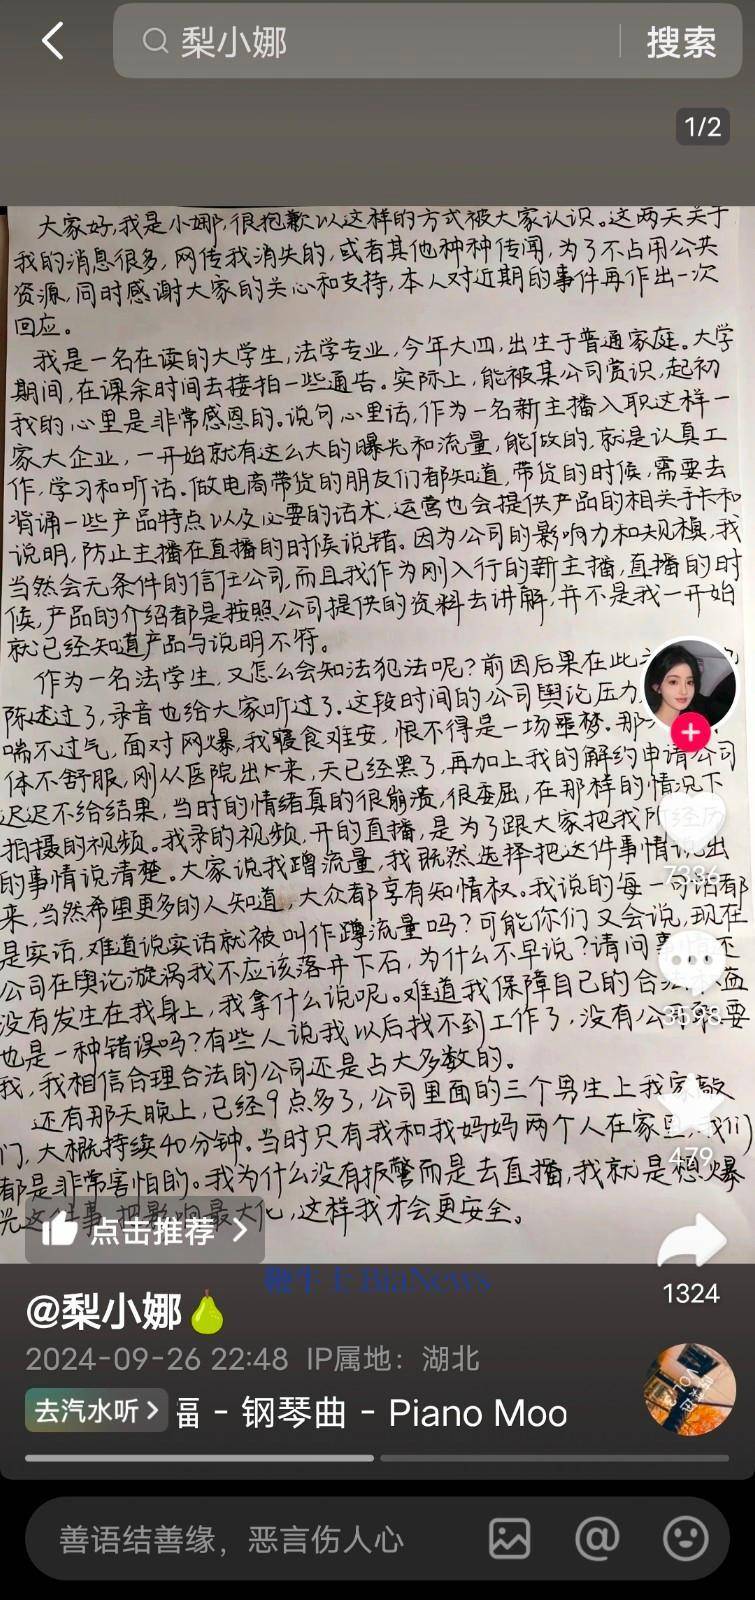 梨小娜
搜索
1/2
大家好,我是小娜,很抱歉以这样的方式被大家认识。这两天关于
我的消息很多,网传我消失的,或者其他种种传闻,为了不占用公共
资源,同时感谢大家的关心和支持,本人对近期的事件再作出一次
回应。
我是一名在读的大学生,法学专业,今年大四,出生于普通家庭。大学
期间,在课余时间去接拍一些通告。实际上,能被某公司赏识,起初
我的心里是非常感恩的。说句心里话,作为一名新主播入职这样一
家大企业,一开始就有这么大的曝光和流量,能做的,就是认真工
作,学习和听话。做电商带货的朋友们都知道,带货的时候,需要去
背诵一些产品特点以及必要的话术,运营也会提供产品的相关手卡和
说明,防止主播在直播的时候说错。因为公司的影响力和规模,我
当然会无条件的信任公司,而且我作为刚入行的新主播,直播的时
候,产品的介绍都是按照公司提供的资料去讲解,并不是我一开始
就已经知道产品与说明不符。
作为一名法学生,又怎么会知法犯法呢?前因后果在此
陈述过了,录音也给大家听过了。这段时间的公司舆论压力
喘不过气,面对网爆,我寝食难安,恨不得是一场噩梦。那
体不舒服,刚从医院出来,天已经黑了,再加上我的解约申请公司
迟迟不给结果,当时的情绪真的很崩溃,很委屈,在那样的情况下
拍摄的视频。我录的视频,开的直播,是为了跟大家把我所经历
的事情说清楚。大家说我蹭流量,我既然选择把这件事情说出
来,当然希望更多的人知道,大众都享有知情权。我说的每一句话都
是实话,难道说实话就被叫作蹭流量吗?可能你们又会说,现在
公司在舆论漩涡我不应该落井下石,为什么不早说?请问事情还
没有发生在我身上,我拿什么说呢。难道我保障自己的合法权益
也是一种错误吗?有些人说我以后找不到工作了,没有公司敢要
我,我相信合理合法的公司还是占大多数的。
还有那天晚上,已经9点多了,公司里面的三个男生上我家敲
门,大概持续40分钟。当时只有我和我妈妈两个人在家里,我们
都是非常害怕的。我为什么没有报警而是去直播,我就是想爆
光这件事,把影响最大化,这样我才会更安全。
7336
3598
479
点击推荐
1324
鞭牛士 BiaNews
@梨小娜
2024-09-26 22:48 IP属地:湖北
去汽水听 - 钢琴曲 - Piano Moo
善语结善缘,恶言伤人心